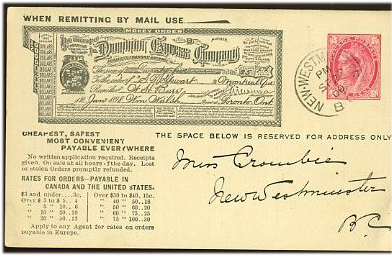 WHEN REMITTING BY MAIL USE
MONEY ORDER
Dominion Express Company
Montreal Que
12 June 1898 Wm. Walsh Toronto, Ont
CHEAPEST, SAFEST
MOST CONVENIENT
PAYABLE EVERYWHERE
No written application required. Receipts
given. On sale at all hours of the day. Lost
or stolen Orders promptly refunded.
RATES FOR ORDERS—PAYABLE IN
CANADA AND THE UNITED STATES.
$3 and under 3c.
Over $3 to $5 4
" 5 " 10 6
" 10 " 20 10
" 20 " 30 12
Over $30 to $40, 15c.
" 40 " 50 18
" 50 " 60 20
" 60 " 75 25
" 75 " 100 30
Apply to any Agent for rates on orders
payable in Europe.
THE SPACE BELOW IS RESERVED FOR ADDRESS ONLY
NEW-WESTM
PM
B
Miss Crombie
New Westminster
B.C.